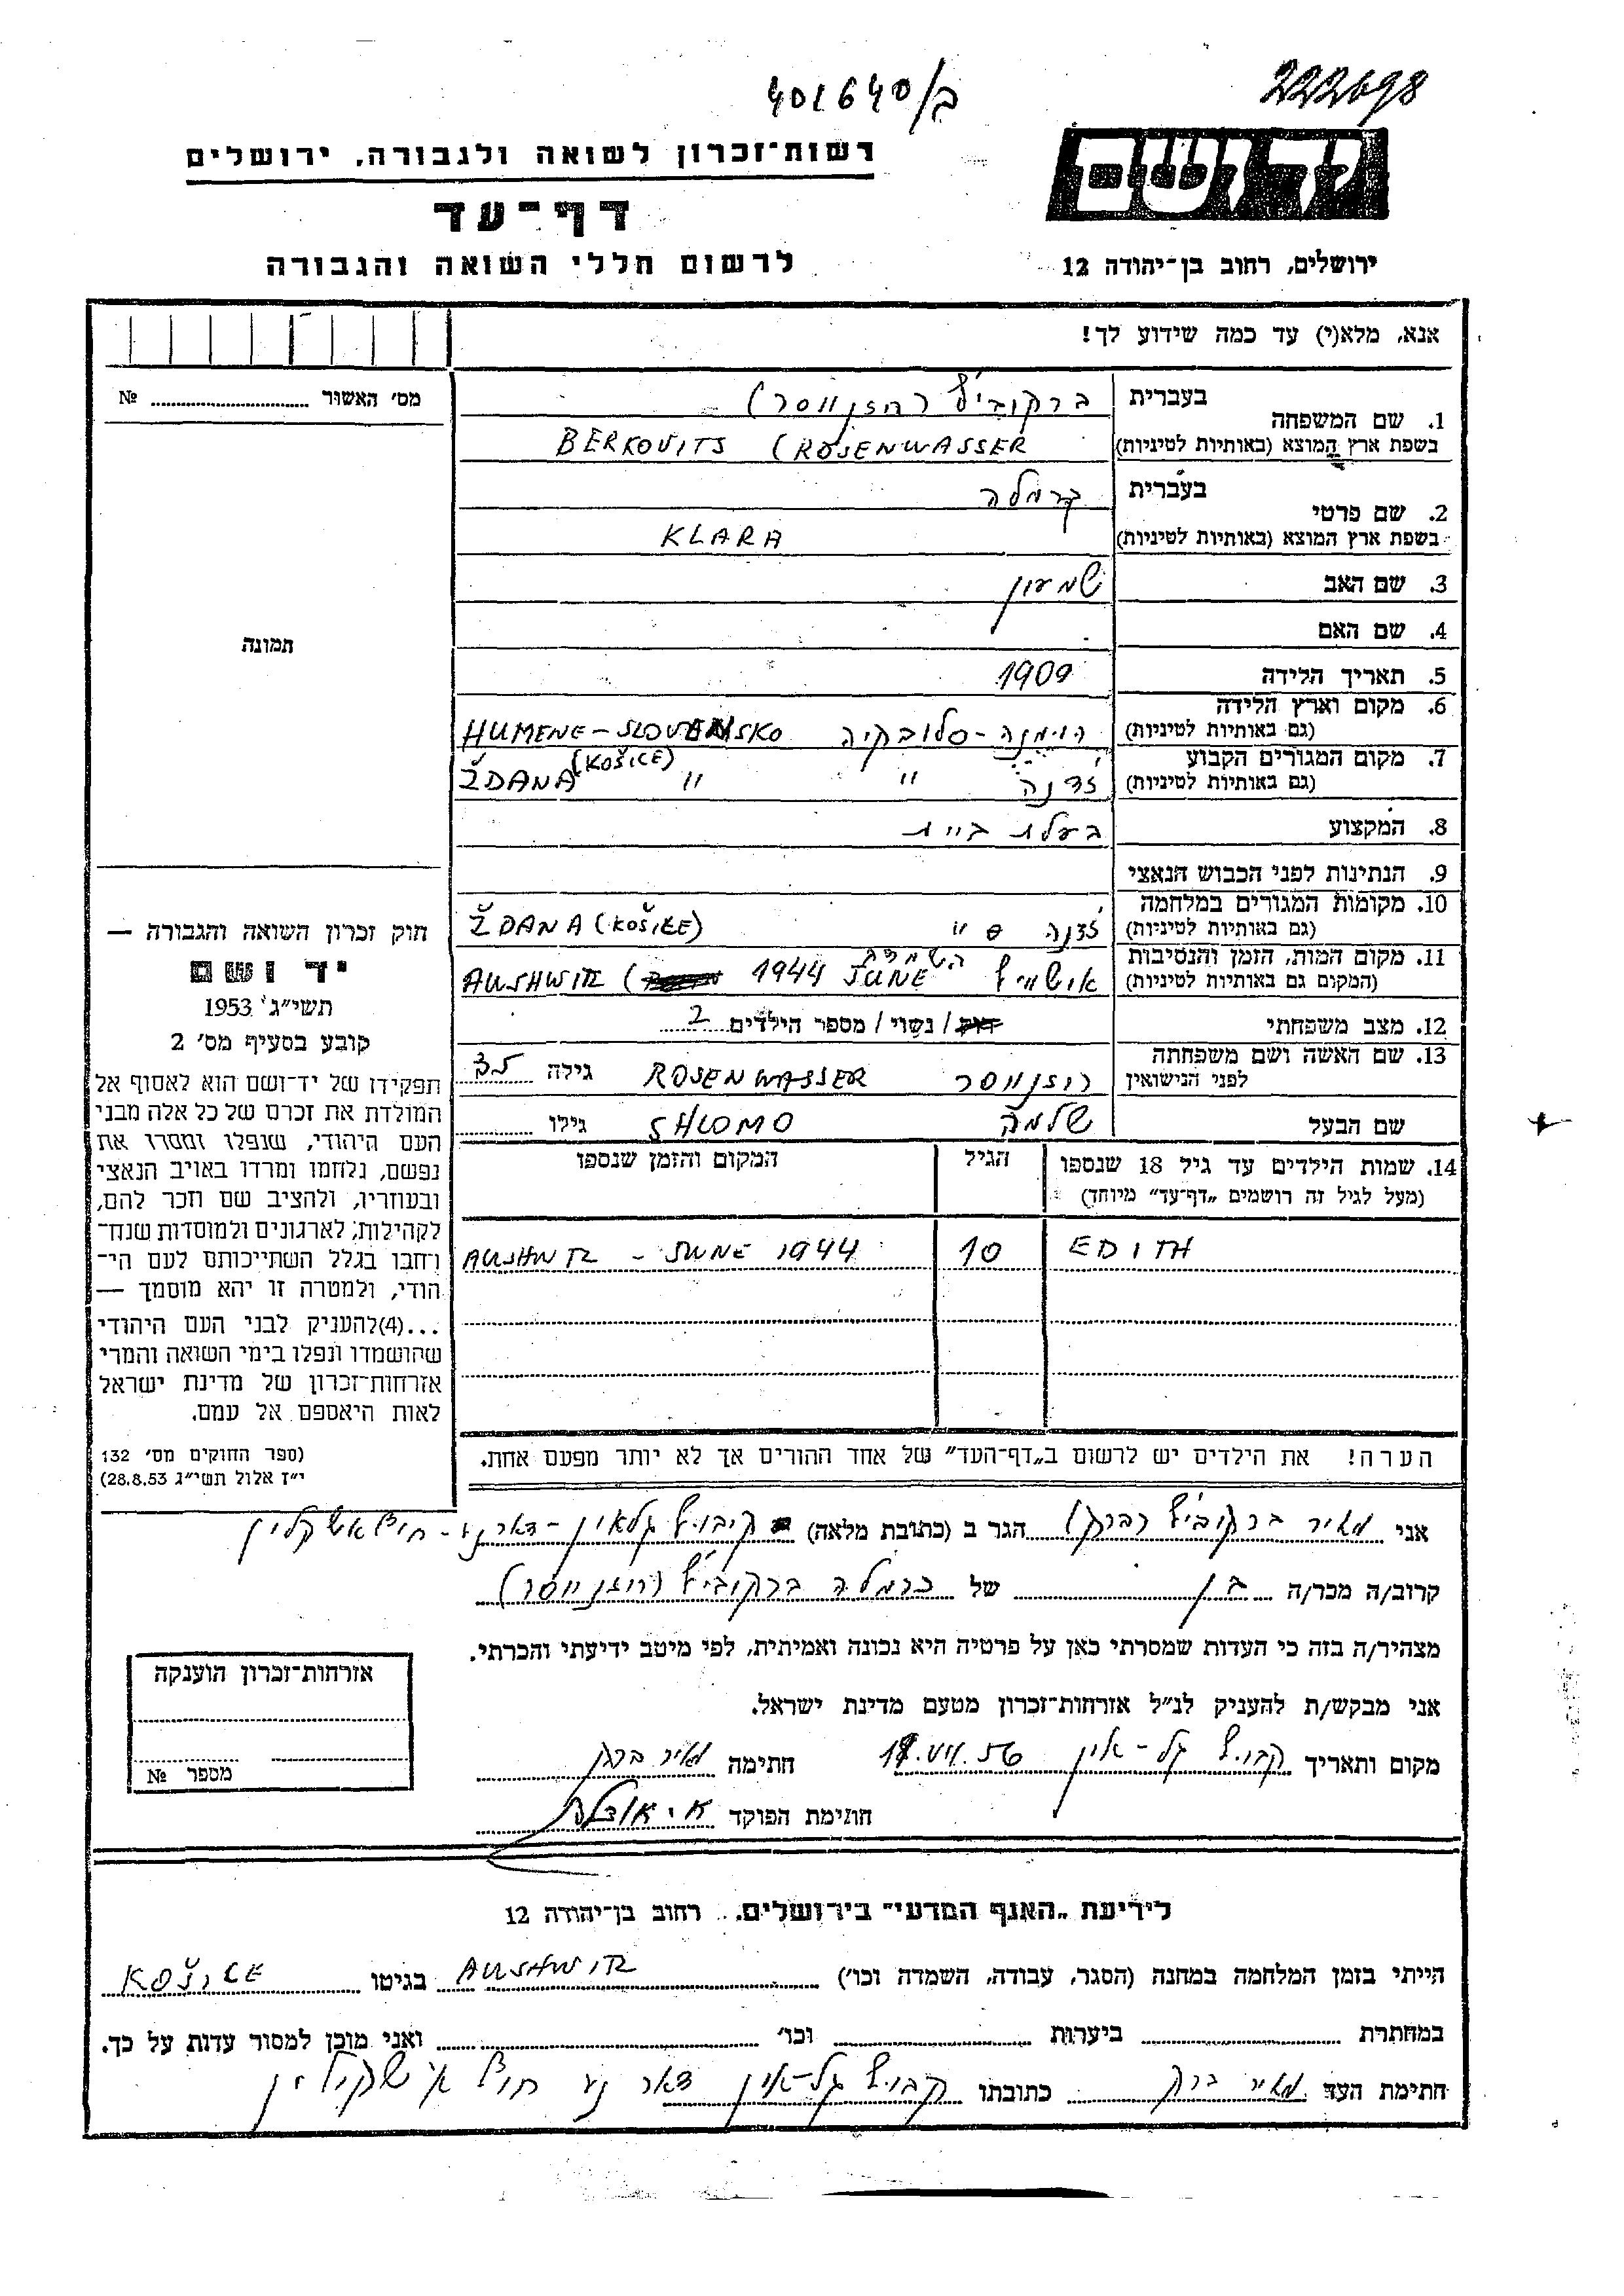 401640/ב
222698
רשות־זכרון לשואה ולגבורה, ירושלים
דף־עד
לרשום חללי השואה והגבורה
ידושם
ירושלים, רחוב בן־יהודה 12
אנא, מלא(י) עד כמה שידוע לך!
מס׳ האשור ........ №
תמונה
1. שם המשפחה
בעברית ברקוביץ (רוזנווסר)
בשפת ארץ המוצא (באותיות לטיניות) BERKOVITS (ROSENWASSER
2. שם פרטי
בעברית כרמלה
בשפת ארץ המוצא (באותיות לטיניות) KLARA
3. שם האב שמעון
4. שם האם
5. תאריך הלידה 1909
6. מקום וארץ הלידה
(גם באותיות לטיניות) הומנה-סלובקיה HUMENE-SLOVENSKO
7. מקום המגורים הקבוע
(גם באותיות לטיניות) ז'דנה " " ŽDANA (KOŠICE)
8. המקצוע בעלת בית
9. הנתינות לפני הכבוש הנאצי
10. מקומות המגורים במלחמה
(גם באותיות לטיניות) ז'דנה " ŽDANA (KOŠICE)
11. מקום המות, הזמן והנסיבות
(המקום גם באותיות לטיניות) אושוויץ השמדה JUNE 1944 AUSHWITZ
12. מצב משפחתי רווק / נשוי / מספר הילדים 2
13. שם האשה ושם משפחתה
לפני הנישואין רוזנווסר ROSENWASSER גילה 35
שם הבעל שלמה SHLOMO גילו ........
14. שמות הילדים עד גיל 18 שנספו
(מעל לגיל זה רושמים „דף־עד" מיוחד)
הגיל
המקום והזמן שנספו
EDITH 10 AUSHWITZ - JUNE 1944
חוק זכרון השואה והגבורה —
יד ושם
תשי״ג 1953
קובע בסעיף מס׳ 2
תפקידו של יד־ושם הוא לאסוף אל
המולדת את זכרם של כל אלה מבני
העם היהודי, שנפלו ומסרו את
נפשם, נלחמו ומרדו באויב הנאצי
ובעוזריו, ולהציב שם וזכר להם,
לקהילות, לארגונים ולמוסדות שנח־
רחבו בגלל השתייכותם לעם הי־
הודי, ולמטרה זו יהא מוסמך —
...(4)להעניק לבני העם היהודי
שהושמדו ונפלו בימי השואה והמרי
אזרחות־זכרון של מדינת ישראל
לאות היאספם אל עמם.
(ספר החוקים מס׳ 132
י״ז אלול תשי״ג 28.8.53)
הערה! את הילדים יש לרשום ב„דף־העד" של אחד ההורים אך לא יותר מפעם אחת.
אני מאיר ברקוביץ (ברק) הגר ב (כתובת מלאה) קיבוץ גלאון-דאר נע-חוף אשקלון
קרוב/ה מכר/ה בן של כרמלה ברקוביץ (רוזנווסר)
מצהיר/ה בזה כי העדות שמסרתי כאן על פרטיה היא נכונה ואמיתית, לפי מיטב ידיעתי והכרתי.
אני מבקש/ת להעניק לנ״ל אזרחות־זכרון מטעם מדינת ישראל.
מקום ותאריך קבוץ גל-און VII.56 חתימה מאיר ברק
חתימת הפוקד
אזרחות־זכרון הוענקה
מספר №
לידיעת „האגף המדעי" בירושלים, רחוב בן־יהודה 12
הייתי בזמן המלחמה במחנה (הסגר, עבודה, השמדה וכו׳) AUSHWITZ בגיטו KOŠICE
במחתרת ........ ביערות ........ וכו׳ ........ ואני מוכן למסור עדות על כך.
חתימת העד מאיר ברק כתובתו קבוץ גל-און דאר נע חוף אשקלון